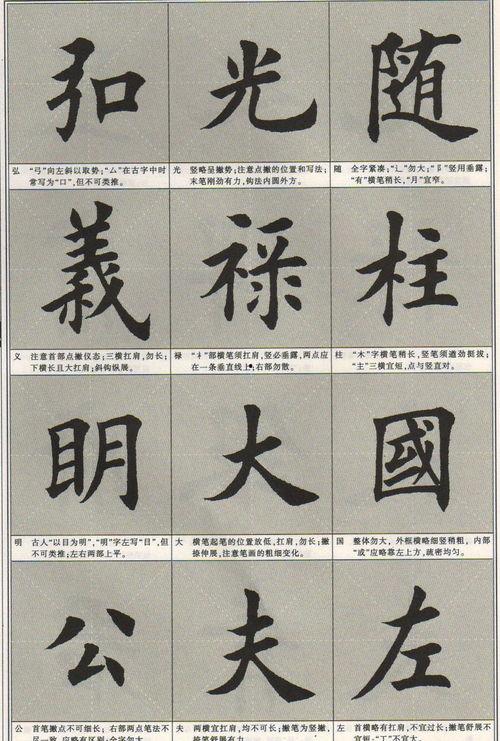 随
随 全字紧凑;“辶”勿大;“阝”竖用垂露;
“有”横笔稍长,“月”宜窄。
柱
柱 “木”字横笔稍长,竖笔须遒劲挺拔;
“主”三横宜短,点与竖直对。
國
国 整体勿大,外框横略细竖稍粗,内部
“或”应略靠左上方,疏密均匀。
左
左 首横略有扛肩,不宜过长;撇笔舒展不
光
光 竖略呈撇势;注意点撇的位置和写法;
末笔刚劲有力,钩法内圆外方。
禄
禄 “礻”部横笔须扛肩,竖必垂露,两点应
在一条垂直线上;右部勿散。
大
大 横笔起笔的位置放低,扛肩,勿长;撇
捺伸展,注意笔画的粗细变化。
夫
夫 两横宜扛肩,均不可长;撇笔为竖撇,
弘
弘 “弓”向左斜以取势;“厶”在古字中时
常写为“口”,但不可类推。
義
义 注意首部点撇仪态;三横扛肩,勿长;
下横长且大扛肩;斜钩纵展。
眀
明 古人“以目为明”,“明”字左写“目”,但
不可类推;左右两部上平。
公
公 首笔撇点不可细长;右部两点笔法不